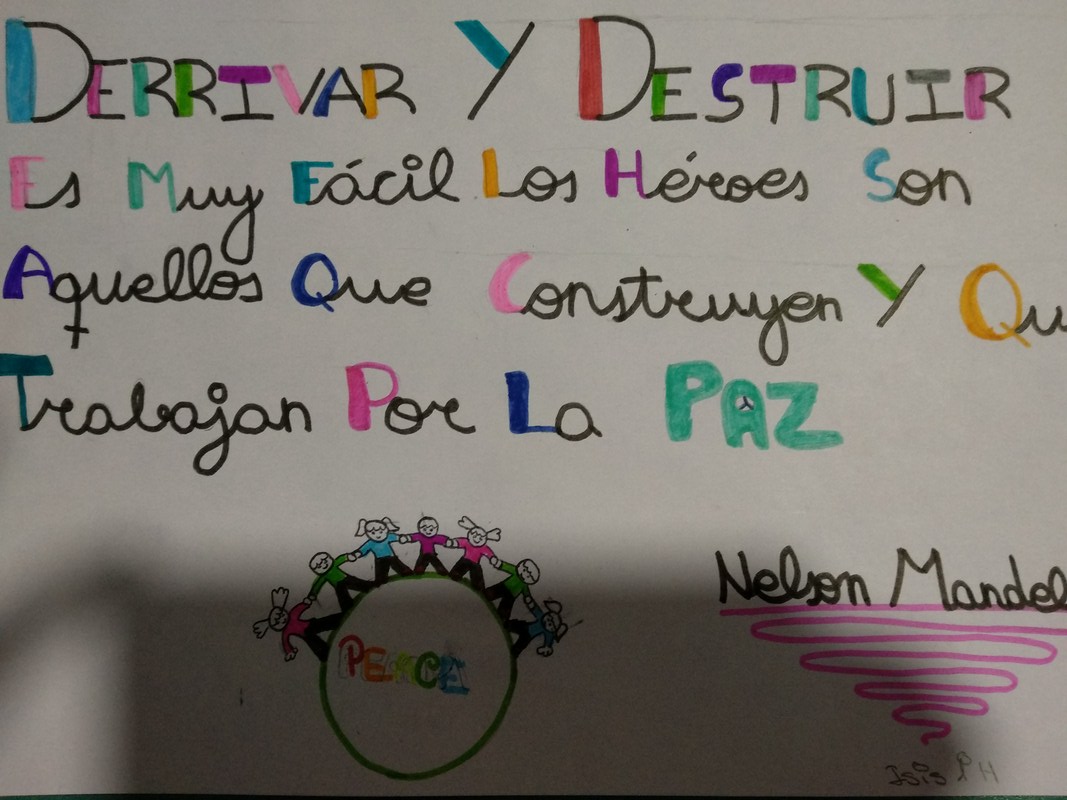 DERRIVAR Y DESTRUIR
Es Muy Fácil Los Héroes Son
Aquellos Que Construyen Y Qu
Trabajan Por La PAZ
PEACE
Nelson Mandel
Isis P H